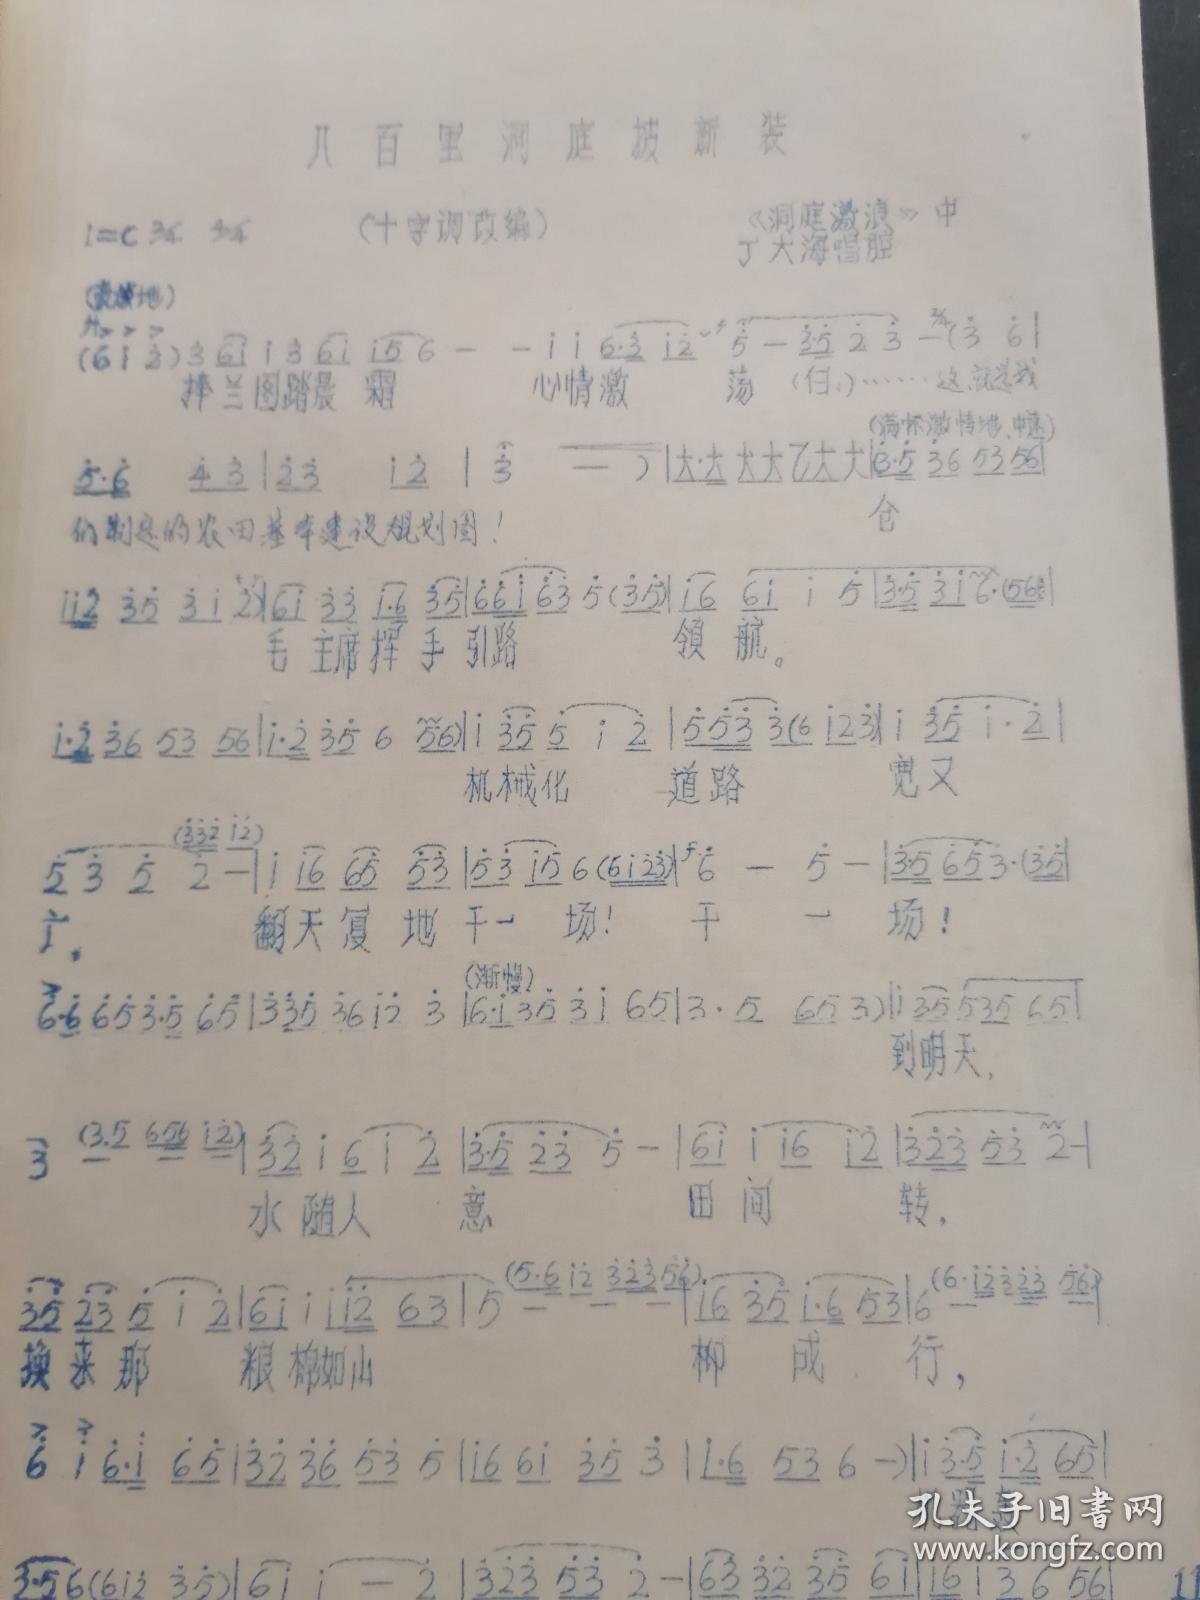 八百里洞庭披新装
1=C 3/4 4/4 (十字调改编) 《洞庭激浪》中
丁大海唱腔
(6 i 2) 3 6i i 3 6i i5 6 — — i i 6·3 i2 5 — 3·5 2 3 — (3 6 |
捧兰图踏晨霜 心情激荡 (白:)……这就是我
(满怀激情地、中速)
5·6 4 3 | 23 i2 | 3 — ) | 大·大 大大乙大大 | (3·5 36 53 56 |
们制定的农田基本建设规划图! 仓
ii2 35 3i 2) | 6i 33 i·6 35 | 66i 63 5 (35) | i6 6i i 5 | 3·5 3i 6·(56) |
毛主席挥手引路 领航。
i·2 36 53 56 | i·2 35 6 56) | i 35 5 i 2 | 553 3(6 i23) | i 35 i·2 |
机械化 道路 宽又
(332 i2)
5 3 5 2 — | i i6 65 53 | 53 i5 6 (6i23) | 6 — 5 — | 3·5 653·(35 |
广, 翻天复地干一场! 干一场!
(渐慢)
6·6 653·5 65 | 335 36i2 3 | 6·i 35 3i 65 | 3·5 65 3) | i 35 535 65 |
到明天,
3 (3.5 656 i2) | 32 i 6 i 2 | 3·5 23 5 — | 6i i i6 i2 | 323 53 2 — |
水随人意 田间转,
(5·6 i2 323 56) (6·i2323 56)
35 23 5 i 2 | 6i i i2 63 | 5 | i6 35 i·6 53 | 6
换来那粮棉如山 柳成行,
6 i 6·i 65 | 32 36 53 5 | i6 6i 35 3 | i·6 53 6 —) | i 3·5 i·2 65 |
孔夫子旧书网
www.kongfz.com
3·56(6i2 35) | 6i i — 2 | 323 53 2 — | 63 32 35 6i | i6 i 3 6 56 |
11